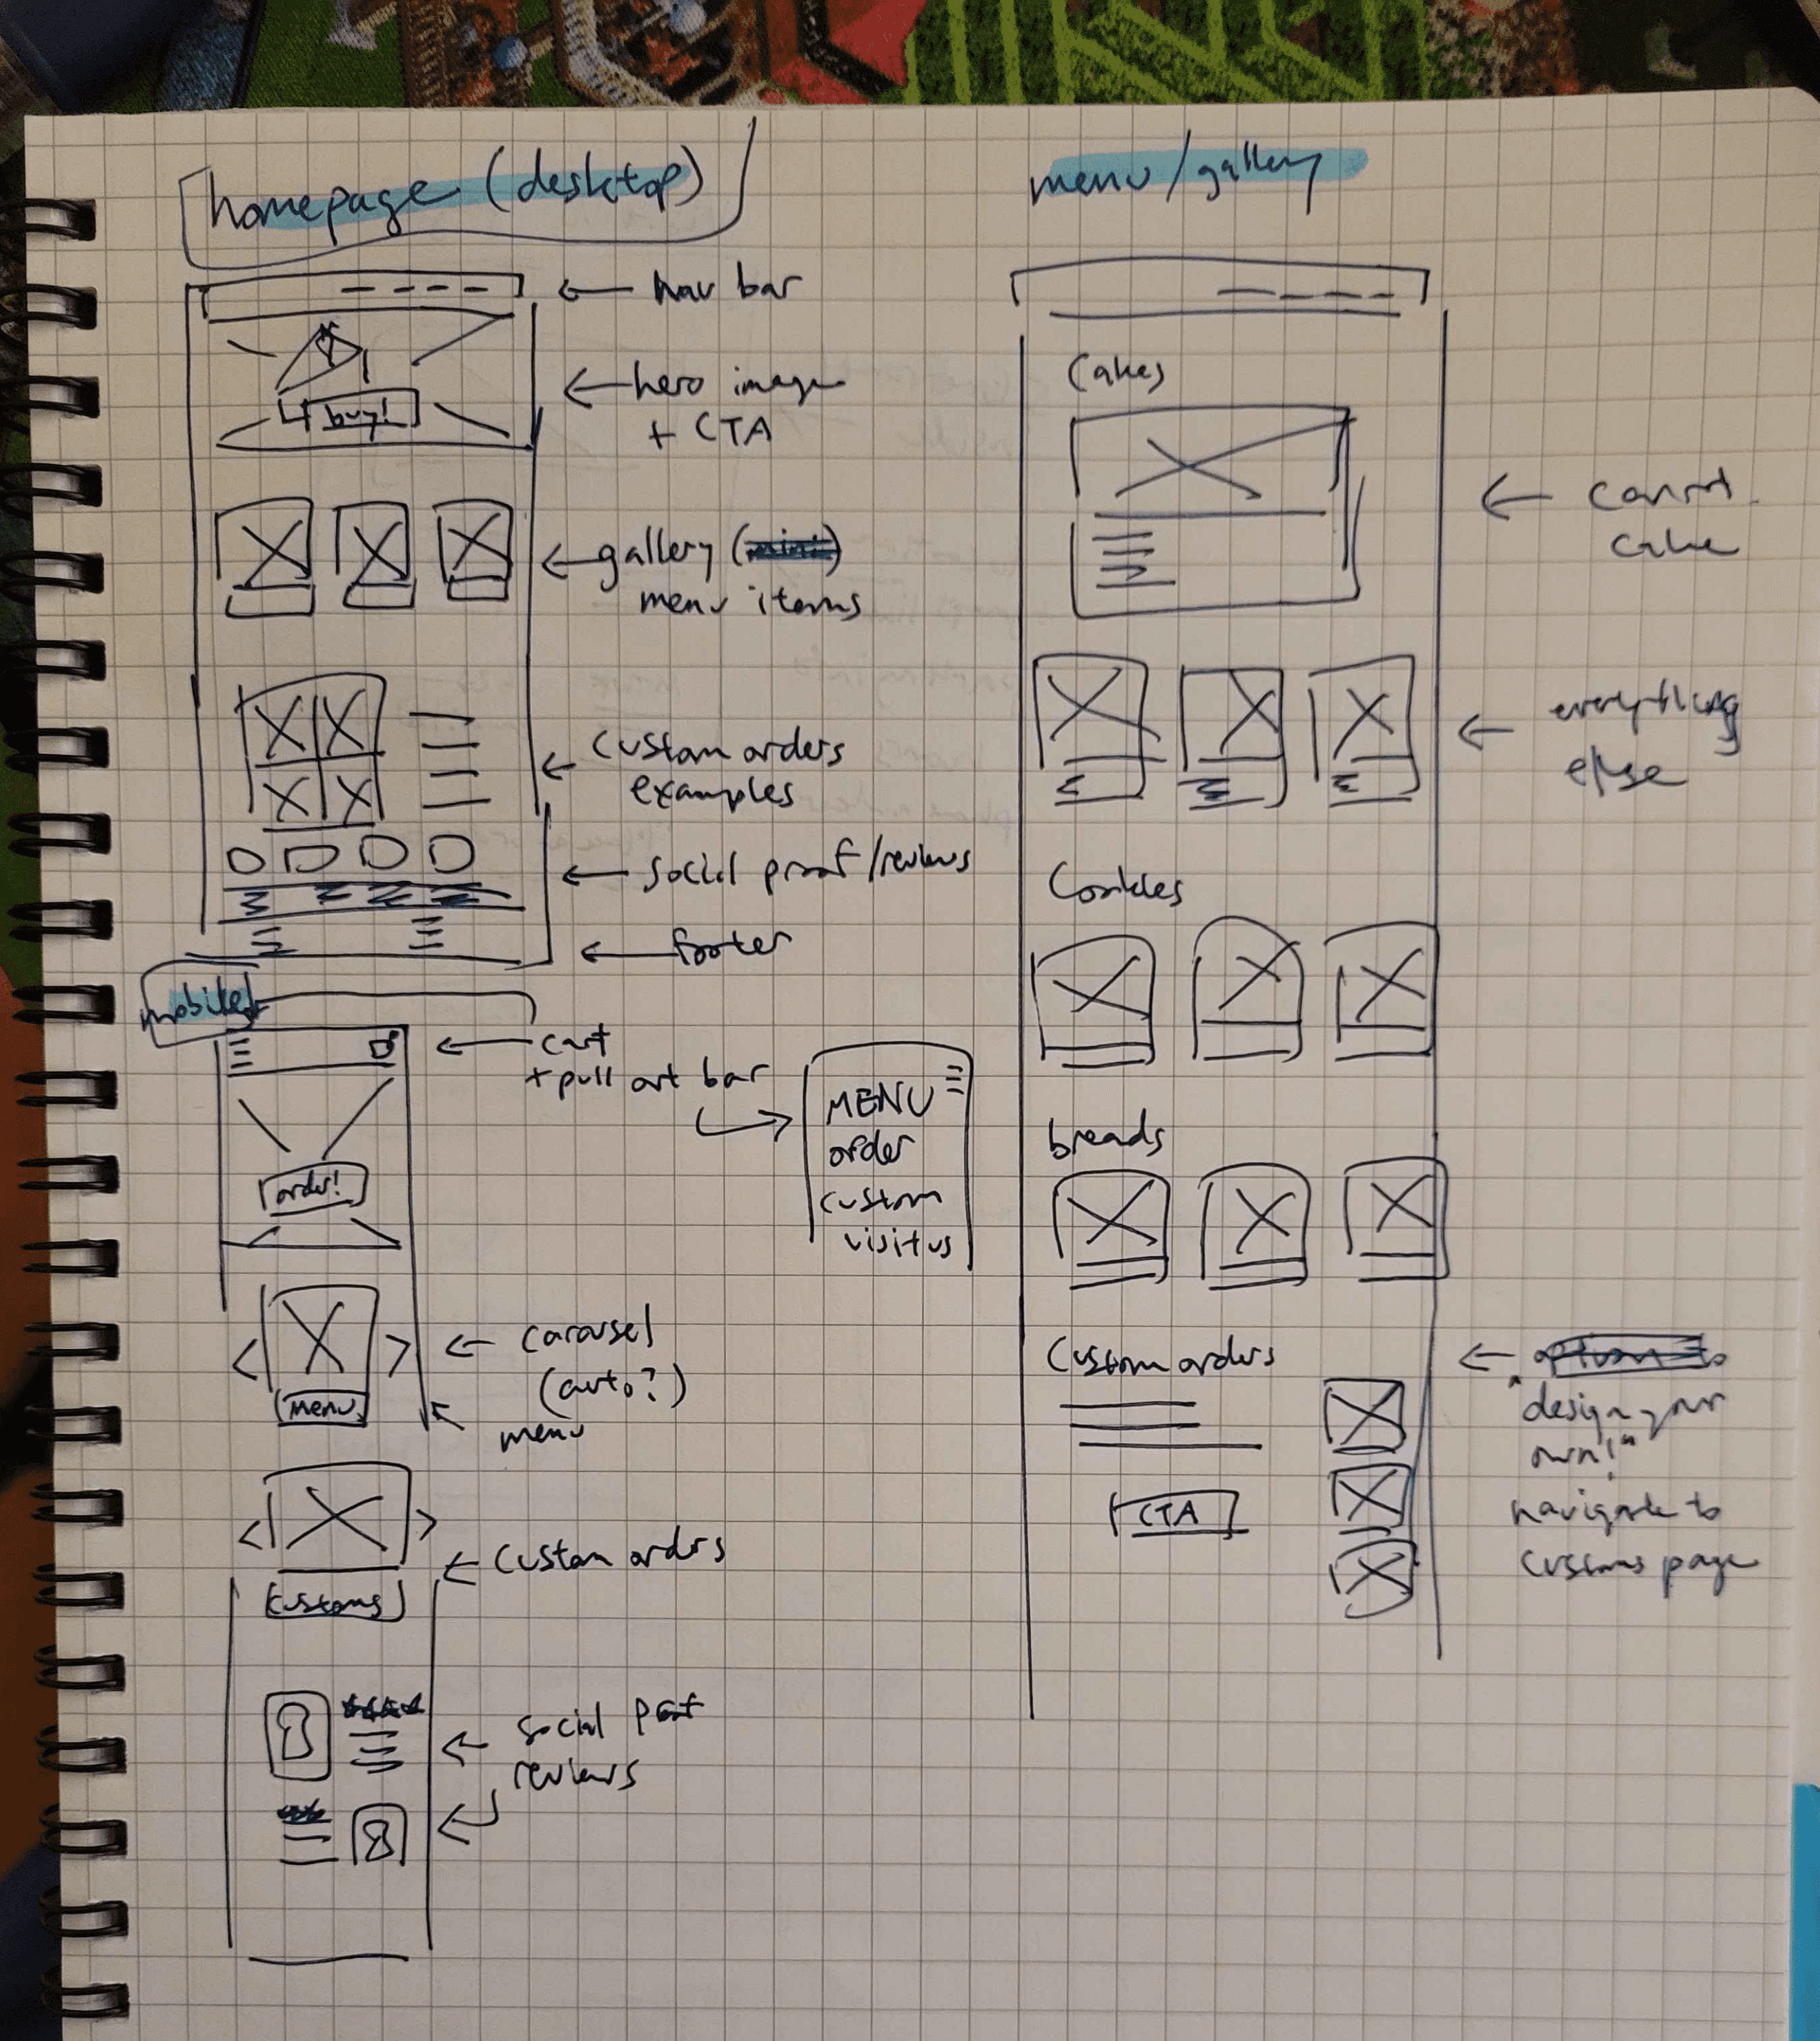 homepage (desktop)
nav bar
buy!
hero image
+ CTA
gallery (mini)
menu items
custom orders
examples
social proof/reviews
footer
mobile
cart
+ pull out bar
order!
MENU
order
custom
visit us
carousel
(auto?)
menu
menu
custom orders
customs
social proof
reviews
menu/gallery
Cakes
carrot
cake
everything
else
Cookies
breads
Custom orders
CTA
option to
"design your
own!"
navigate to
customs page